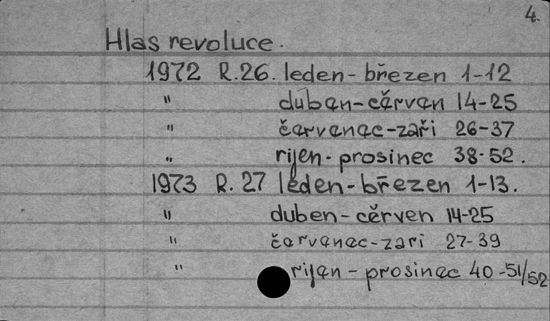 4.
Hlas revoluce.
1972 R.26. leden-březen 1-12
" duban-cěrvan 14-25
" čarvanac-zaři 26-37
" rijen-prosinec 38-52.
1973 R. 27 leden-březen 1-13.
" duben-cěrven 14-25
" čarvanac-zaři 27-39
" rijan-prosinac 40-51/52